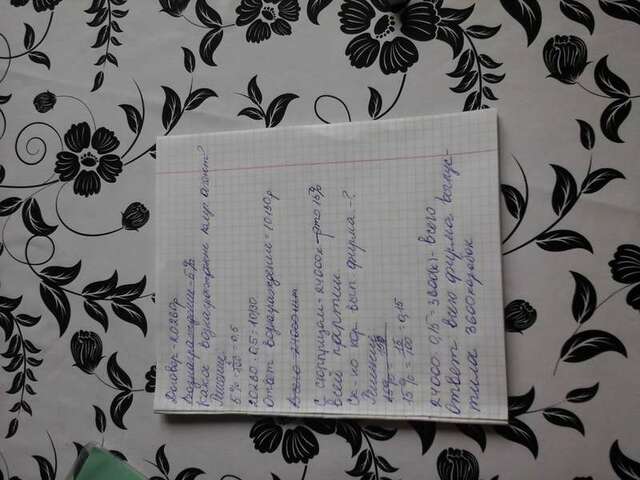 Договор - 20260р
Вознаграждение - 5%
Какое вознаграждение получ агент?
Решение
5% = 5/100 = 0,5
20260 · 0,5 = 10130
Ответ вознаграждение = 10130р
Всего 24000шт
С сюрпризом - 24000к - это 15%
всей партии
Ск-ко кор вып. фирма - ?
Решение
15% = 15
15% = 15/100 = 0,15
24000 · 0,15 = 3600(к) - всего
Ответ всего фирма выпус-
тила 3600 коробок